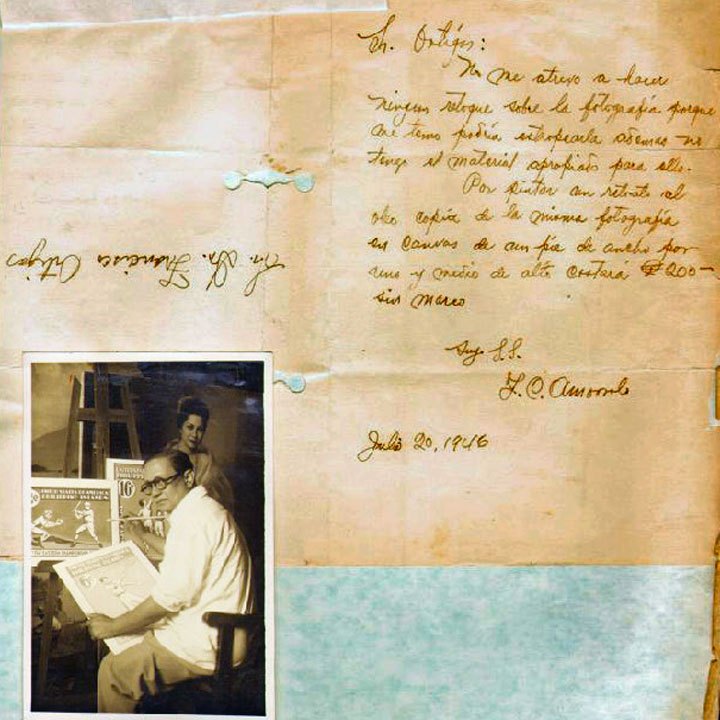 Sr. Ortigas:
No me atrevo a hacer
ningun retoque sobre la fotografía porque
me temo podria estropearla ademas no
tengo el material apropiado para ello.
Por pintar un retrato al
oleo copia de la misma fotografía
en canvas de un pie de ancho por
uno y medio de alto costará ₱200-
sin marco
Suyo S.S.
F. C. Amorsolo
Julio 20, 1946
Sr. Dn. Francisco Ortigas
16